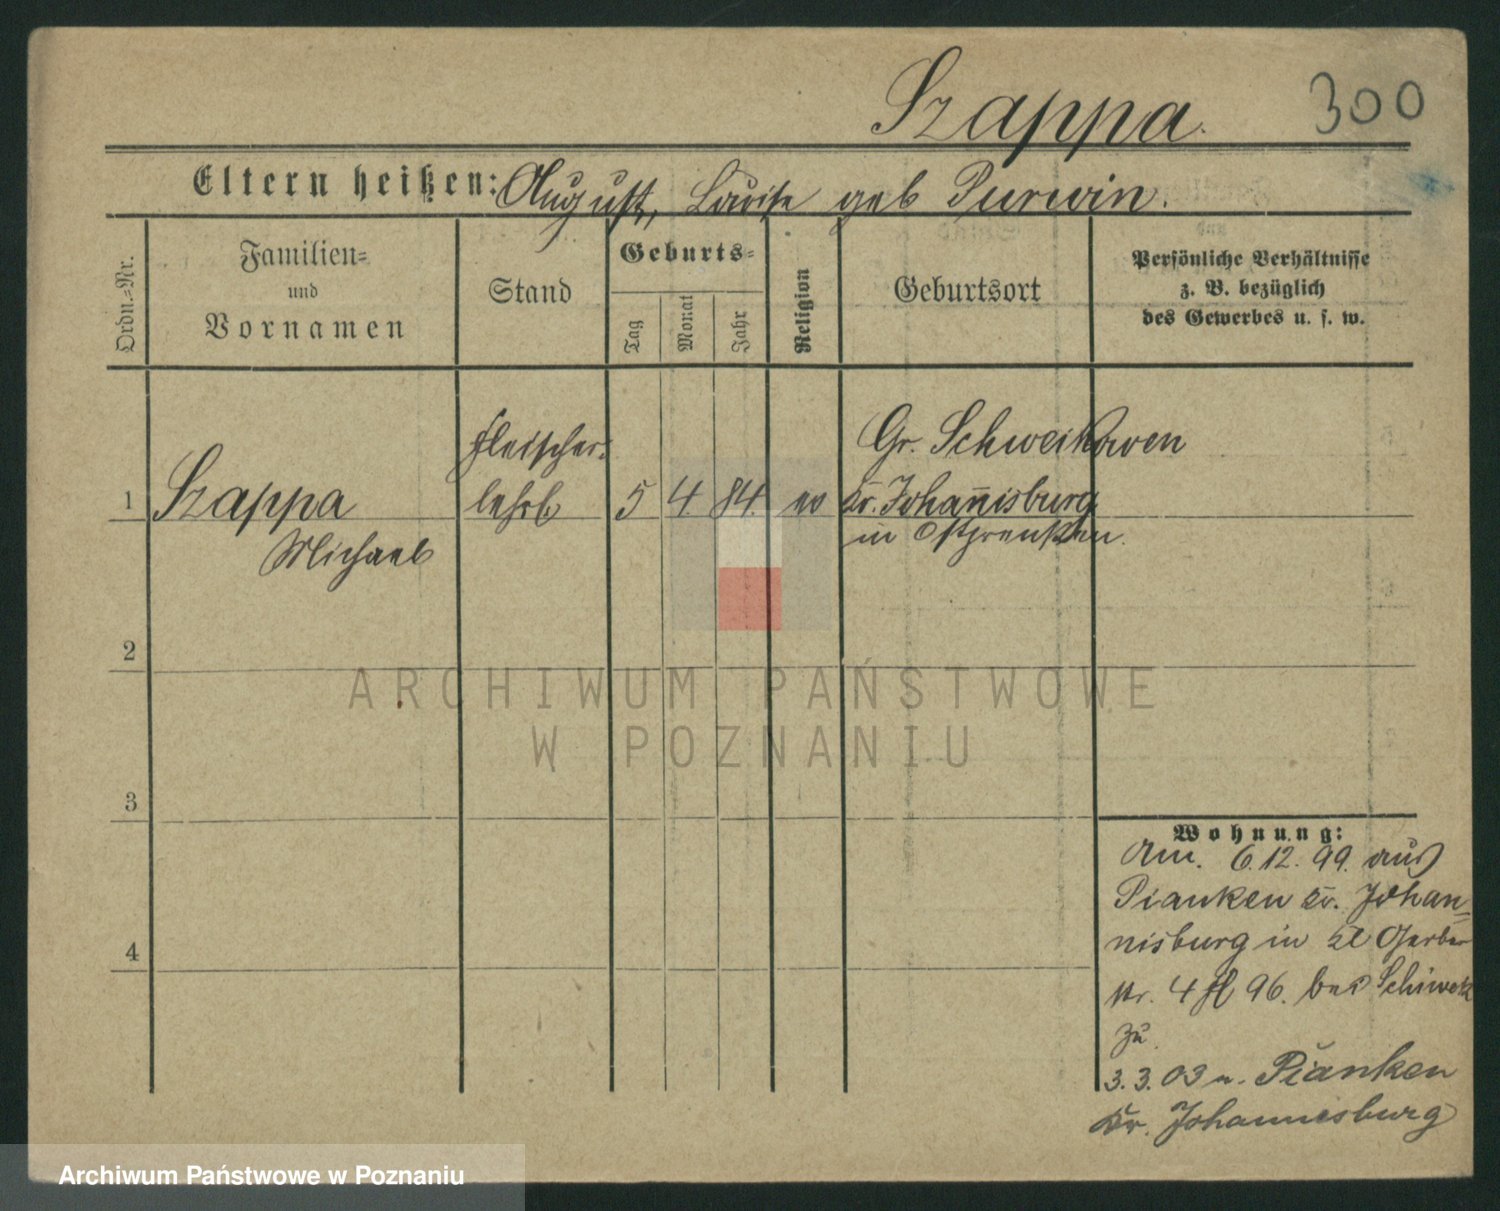 Szappa. 300
Eltern heißen: August, Louise geb Purwin.
Ordn.-Nr.
Familien-
und
Vornamen
Stand
Geburts-
Tag
Monat
Jahr
Religion
Geburtsort
Persönliche Verhältnisse
z. B. bezüglich
des Gewerbes u. s. w.
Fleischer-
Gr. Schweikowen
1 Szappa lehrl 5 4. 84. ev Kr. Johannisburg
Michael in Ostpreußen.
2
3
4
Wohnung:
Am. 6.12.99. aus
Pianken Kr. Johan-
nisburg in Kl Gerber
str. 4 96. bei
zu
3.3.03 n. Pianken
Kr. Johannesburg
ARCHIWUM PAŃSTWOWE
W POZNANIU
Archiwum Państwowe w Poznaniu